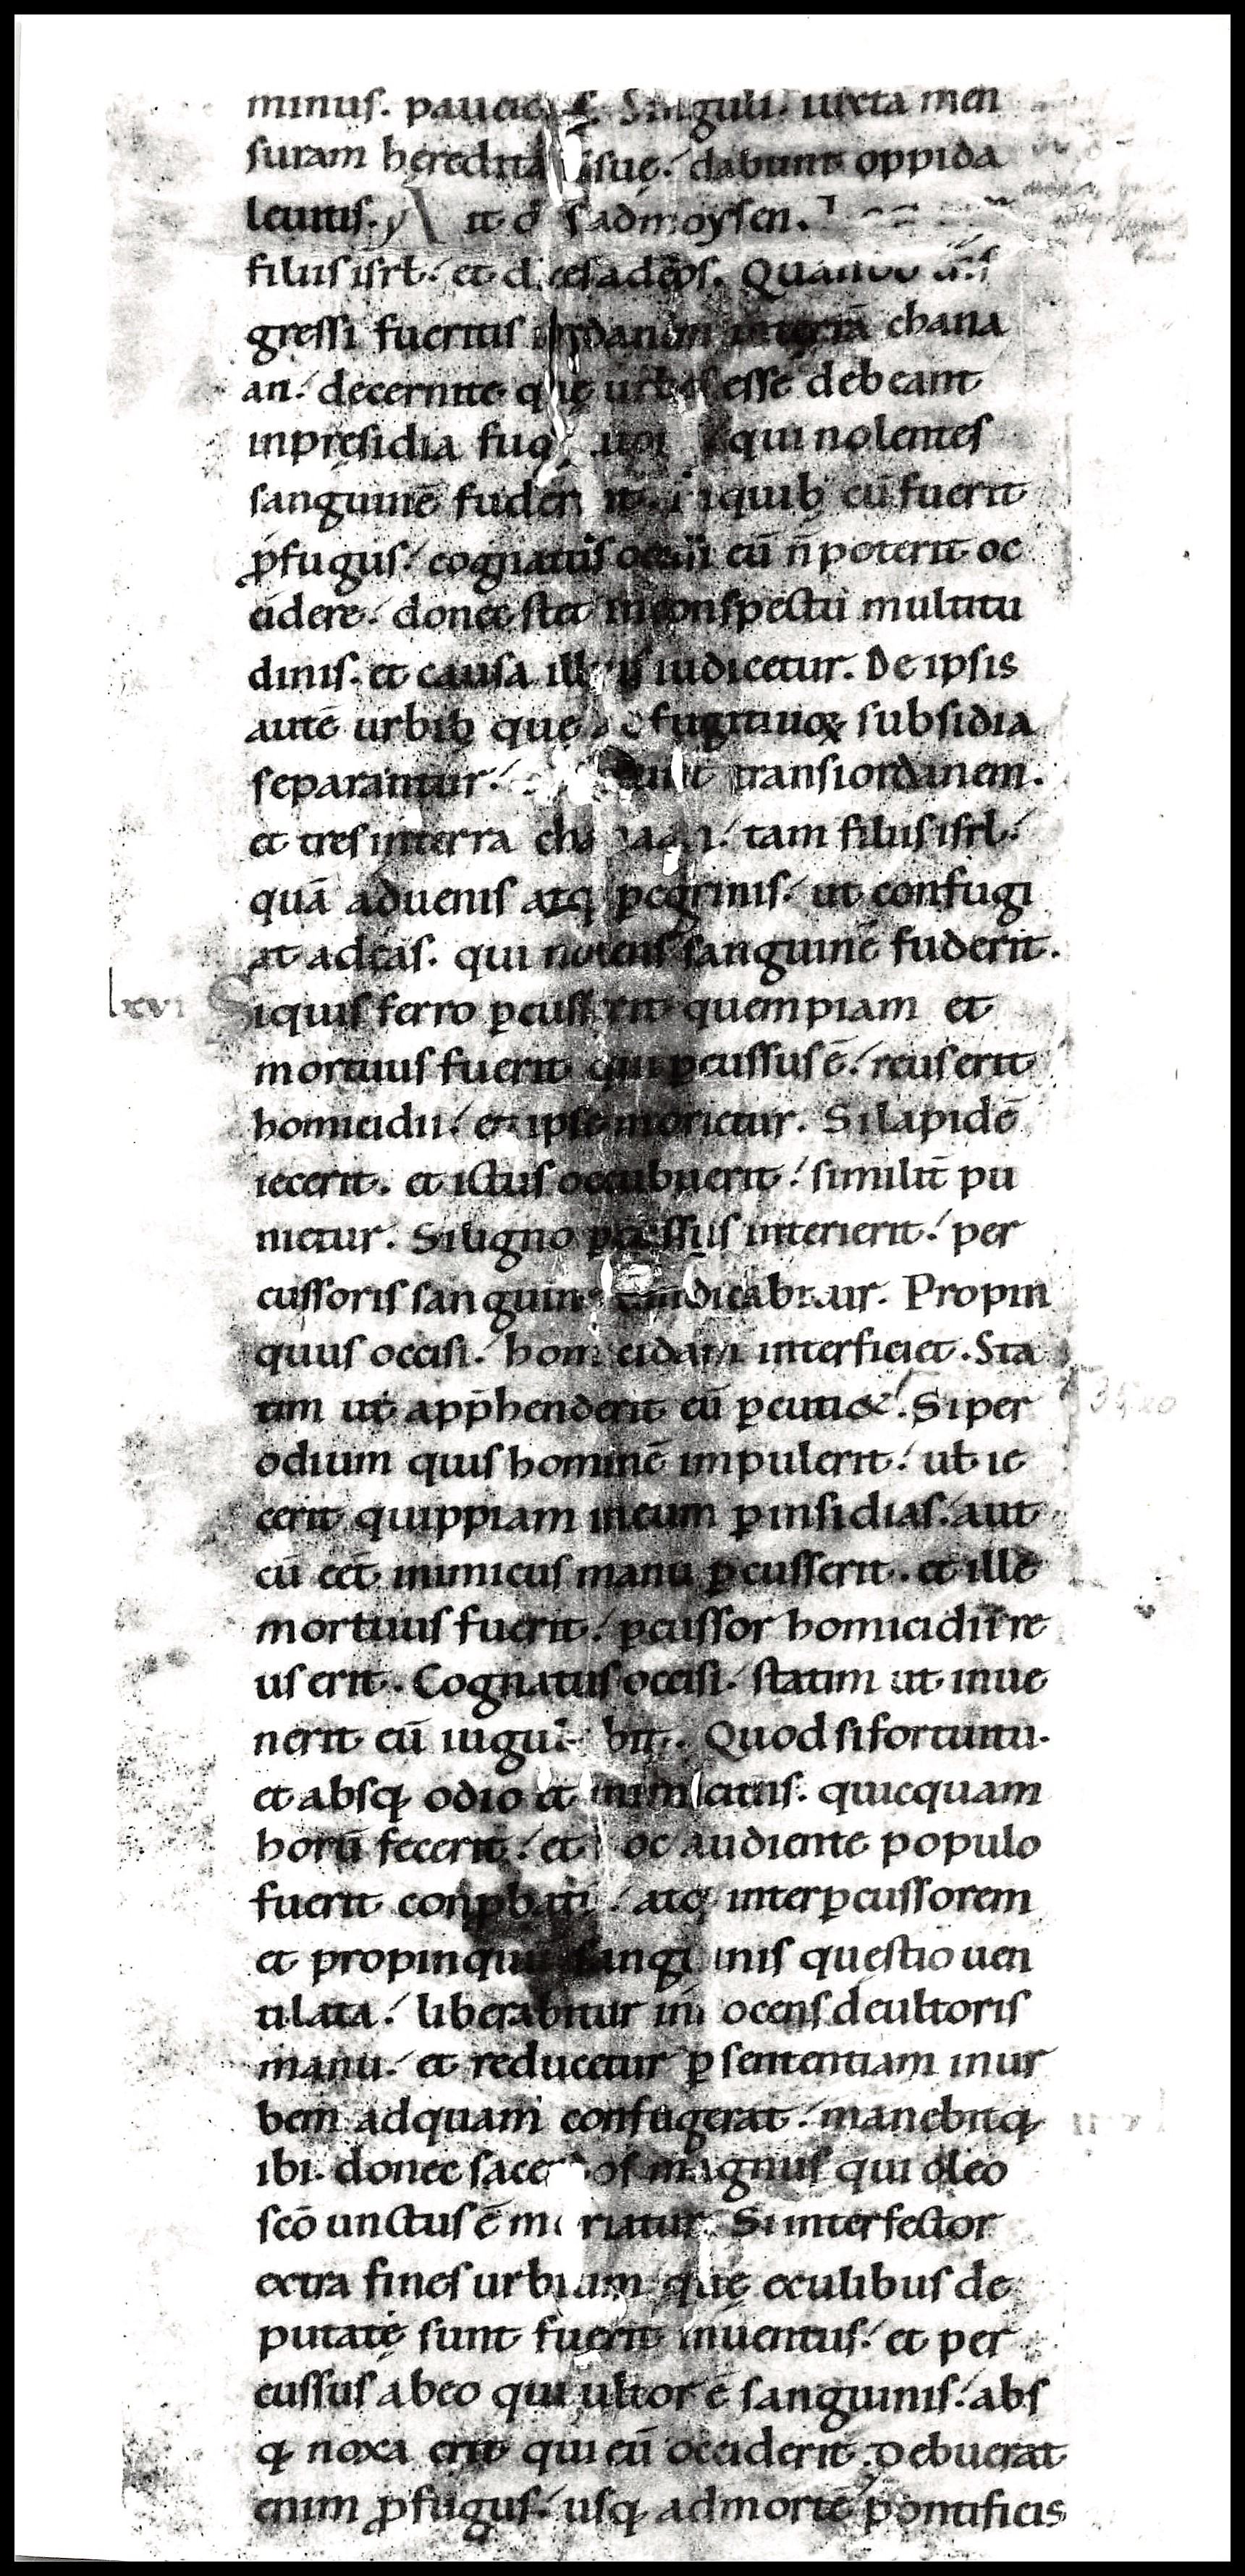 minus. paucio Singuli. iuxta men
suram heredita suę. dabunt oppida
leuitis. it d s admoysen.
filiis isrl. et dices adeos. Quando
gressi fueritis iordanem interrā chana
an. decernite quę urbes esse debeant
inpręsidia qui nolentes
sanguinē fuderint. iquib; cū fuerit
ꝓfugus. cognatus occisi eū n̄ poterit oc
cidere. donec stet inconspectu multitu
dinis. et causa illius iudicetur. De ipsis
autē urbib; que fugitiuoꝝ subsidia
separantur. transiordanem.
et tres interra chanaan. tam filiis isrl.
quā aduenis atq; ꝑegrinis. ut confugi
at adeas. qui nolens sanguinē fuderit.
lxvi Siquis ferro ꝑcusserit quempiam et
mortuus fuerit qui ꝑcussus ē. reus erit
homicidii. et ipse morietur. Silapidē
iecerit. et ictus occubuerit. similit̄ pu
nietur. Siligno ꝑcussus interierit. per
cussoris sanguine uindicabitur. Propin
quus occisi. homicidam interficiet. Sta
tim ut app̄henderit eū ꝑcutiet. Siper
odium quis hominē impulerit. uł ie
cerit quippiam ineum ꝑinsidias. aut
cū eēt inimicus manu ꝑcusserit. et ille
mortuus fuerit. ꝑcussor homicidii re
us erit. Cognatus occisi. statim ut inue
nerit eū iugulabit. Quod sifortuitu.
et absq; odio et inimicitiis. quicquam
horū fecerit. et hoc audiente populo
fuerit conꝓbatū. atq; interꝑcussorem
et propinquū sanguinis quęstio uen
tilata. liberabitur innocens deultoris
manu. et reducetur ꝑ sententiam inur
bem adquam confugerat. manebitq;
ibi. donec sacerdos magnus qui oleo
scō unctus ē moriatur. Si interfector
extra fines urbium quę exulibus de
putatę sunt fuerit inuentus. et per
cussus abeo qui ultor ē sanguinis. abs
q; noxa erit qui eū occiderit. Debuerat
enim ꝓfugus. usq; admortē pontificis